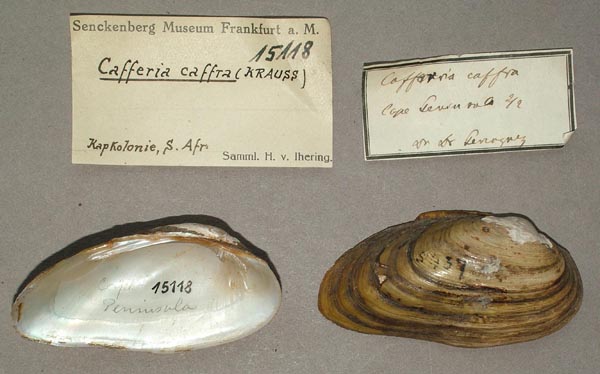 Senckenberg Museum Frankfurt a. M.
15118
Cafferia caffra (KRAUSS)
Kapkolonie, S. Afr.
Samml. H. v. Ihering.
Cafferia caffra
Cape
15118
Peninsula